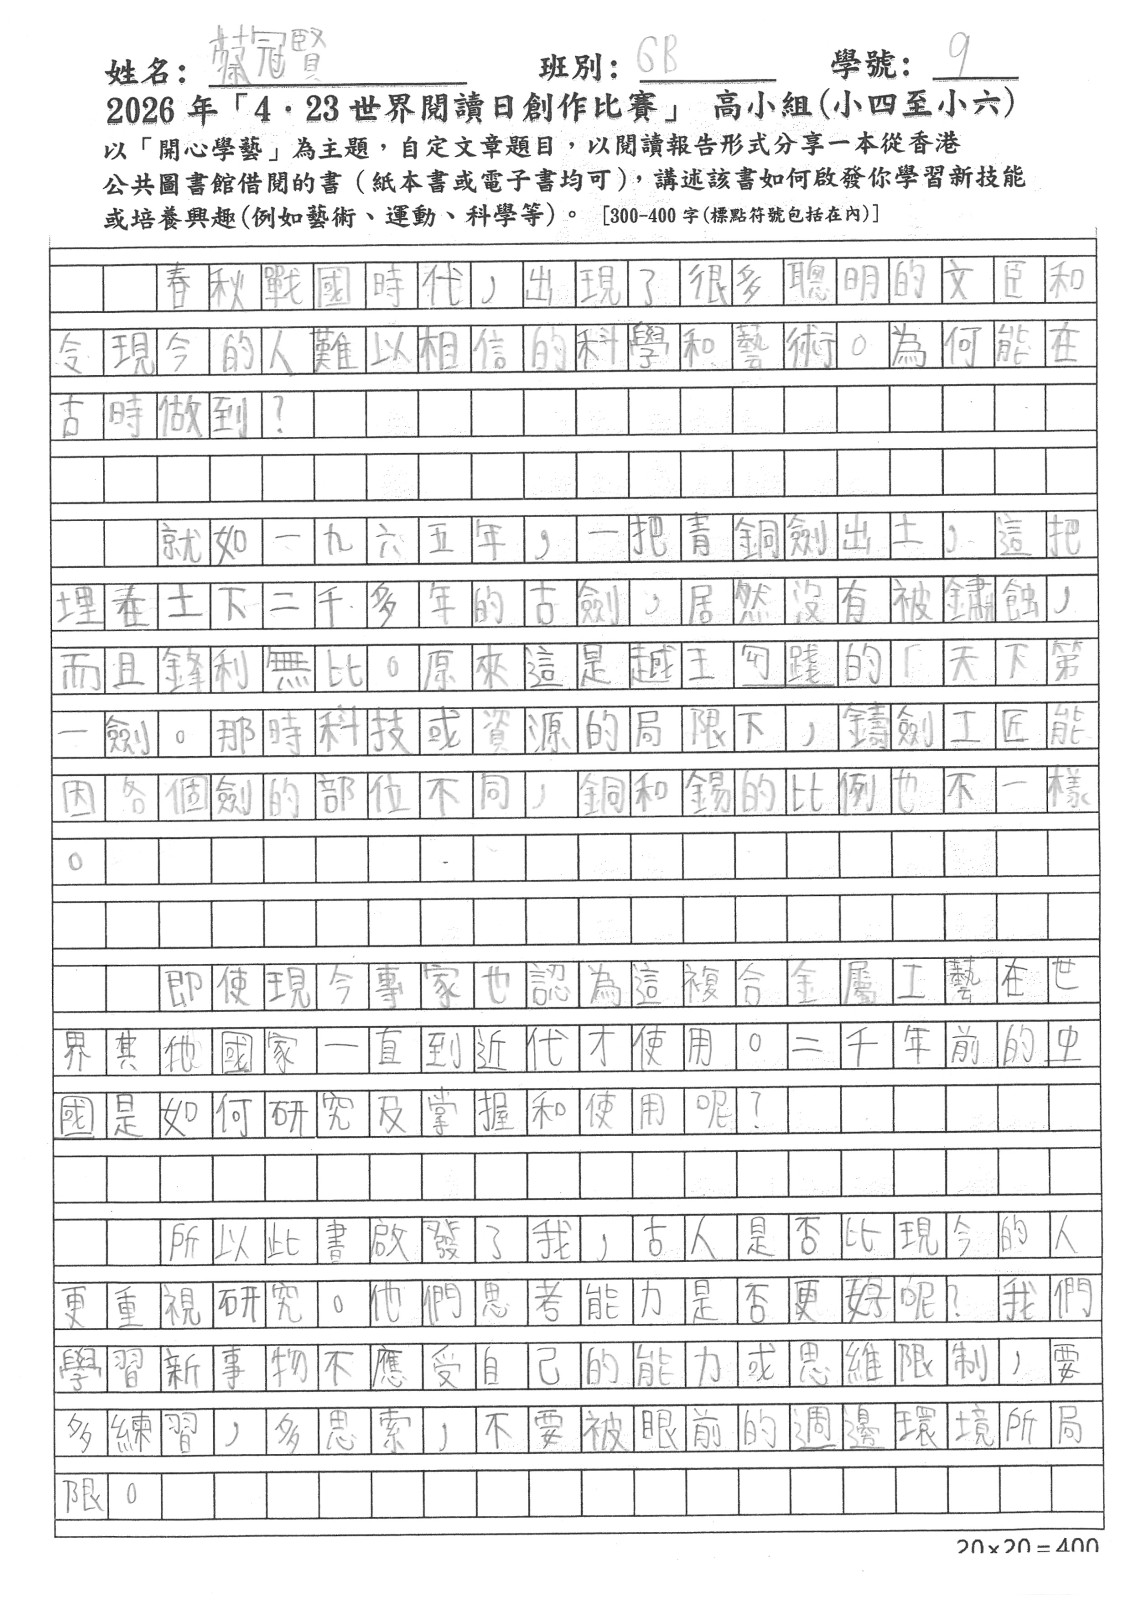 姓名：蔡冠賢 班別：6B 學號：9
2026 年「4．23 世界閱讀日創作比賽」 高小組(小四至小六)
以「開心學藝」為主題，自定文章題目，以閱讀報告形式分享一本從香港
公共圖書館借閱的書（紙本書或電子書均可），講述該書如何啟發你學習新技能
或培養興趣(例如藝術、運動、科學等)。 [300-400 字(標點符號包括在內)]
春秋戰國時代，出現了很多聰明的文臣和
令現今的人難以相信的科學和藝術。為何能在
古時做到？
就如一九六五年，一把青銅劍出土，這把
埋在土下二千多年的古劍，居然沒有被鏽蝕，
而且鋒利無比。原來這是越王勾踐的「天下第
一劍。那時科技或資源的局限下，鑄劍工匠能
因各個劍的部位不同，銅和錫的比例也不一樣
。
即使現今專家也認為這複合金屬工藝在世
界其他國家一直到近代才使用。二千年前的中
國是如何研究及掌握和使用呢？
所以此書啟發了我，古人是否比現今的人
更重視研究。他們思考能力是否更好呢？我們
學習新事物不應受自己的能力或思維限制，要
多練習，多思索，不要被眼前的週邊環境所局
限。
20×20＝400